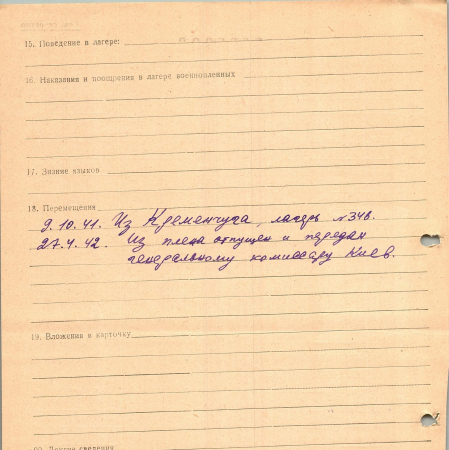 15. Поведение в лагере:
16. Наказания и поощрения в лагере военнопленных
17. Знание языков
18. Перемещения
9.10.41. Из Кременчуга, лагерь №346.
27.4.42. Из плена отпущен и передан
генеральному комиссару Киев.
19. Вложения в карточку
20. Другие сведения